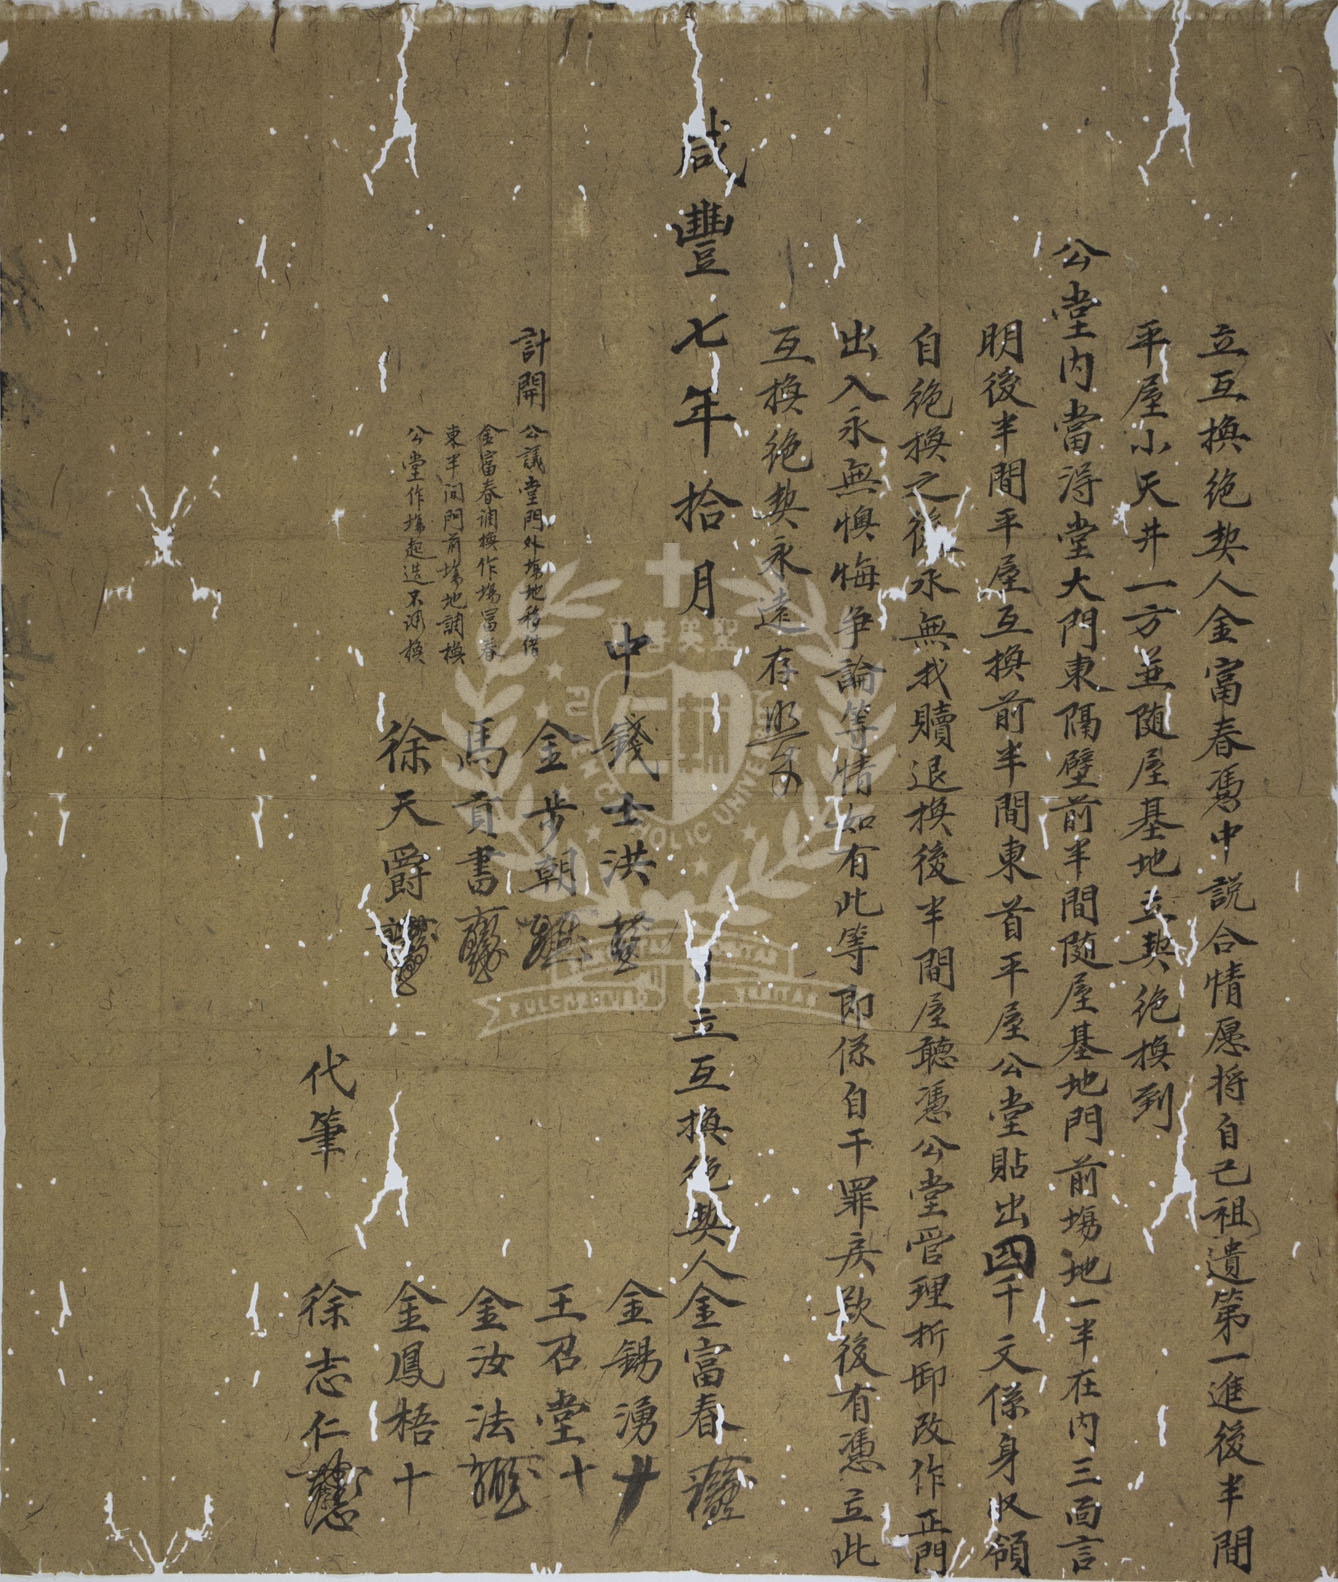 立互換絕契人金富春憑中說合情愿将自己祖遺第一進後半間
平屋小天井一方並随屋基地立契絕換到
公堂内當淂堂大門東隔壁前半間随屋基地門前塲地一半在内三面言
明後半間平屋互換前半間東首平屋公堂貼出四千文係身収領
自絕換之後永無找贖退換後半間屋聽憑公堂管理折卸改作正門
出入永無懊悔争論等情如有此等即係自干罪戾欲後有憑立此
互換絕契永遠存照
咸豐七年拾月 日立互換絕契人金富春
中 錢士洪 金錫湧
金步朝 王召堂十
馬貢書 金汝法
徐天爵 金鳳梧十
代筆 徐志仁
計開 公議堂門外塲地移借
金富春調換作塲富春
東半间門前塲地調換
公堂作塲起造不淂換
聖英善
CATHOLIC UNIVERSITY
PULCHRITUDO VERITAS